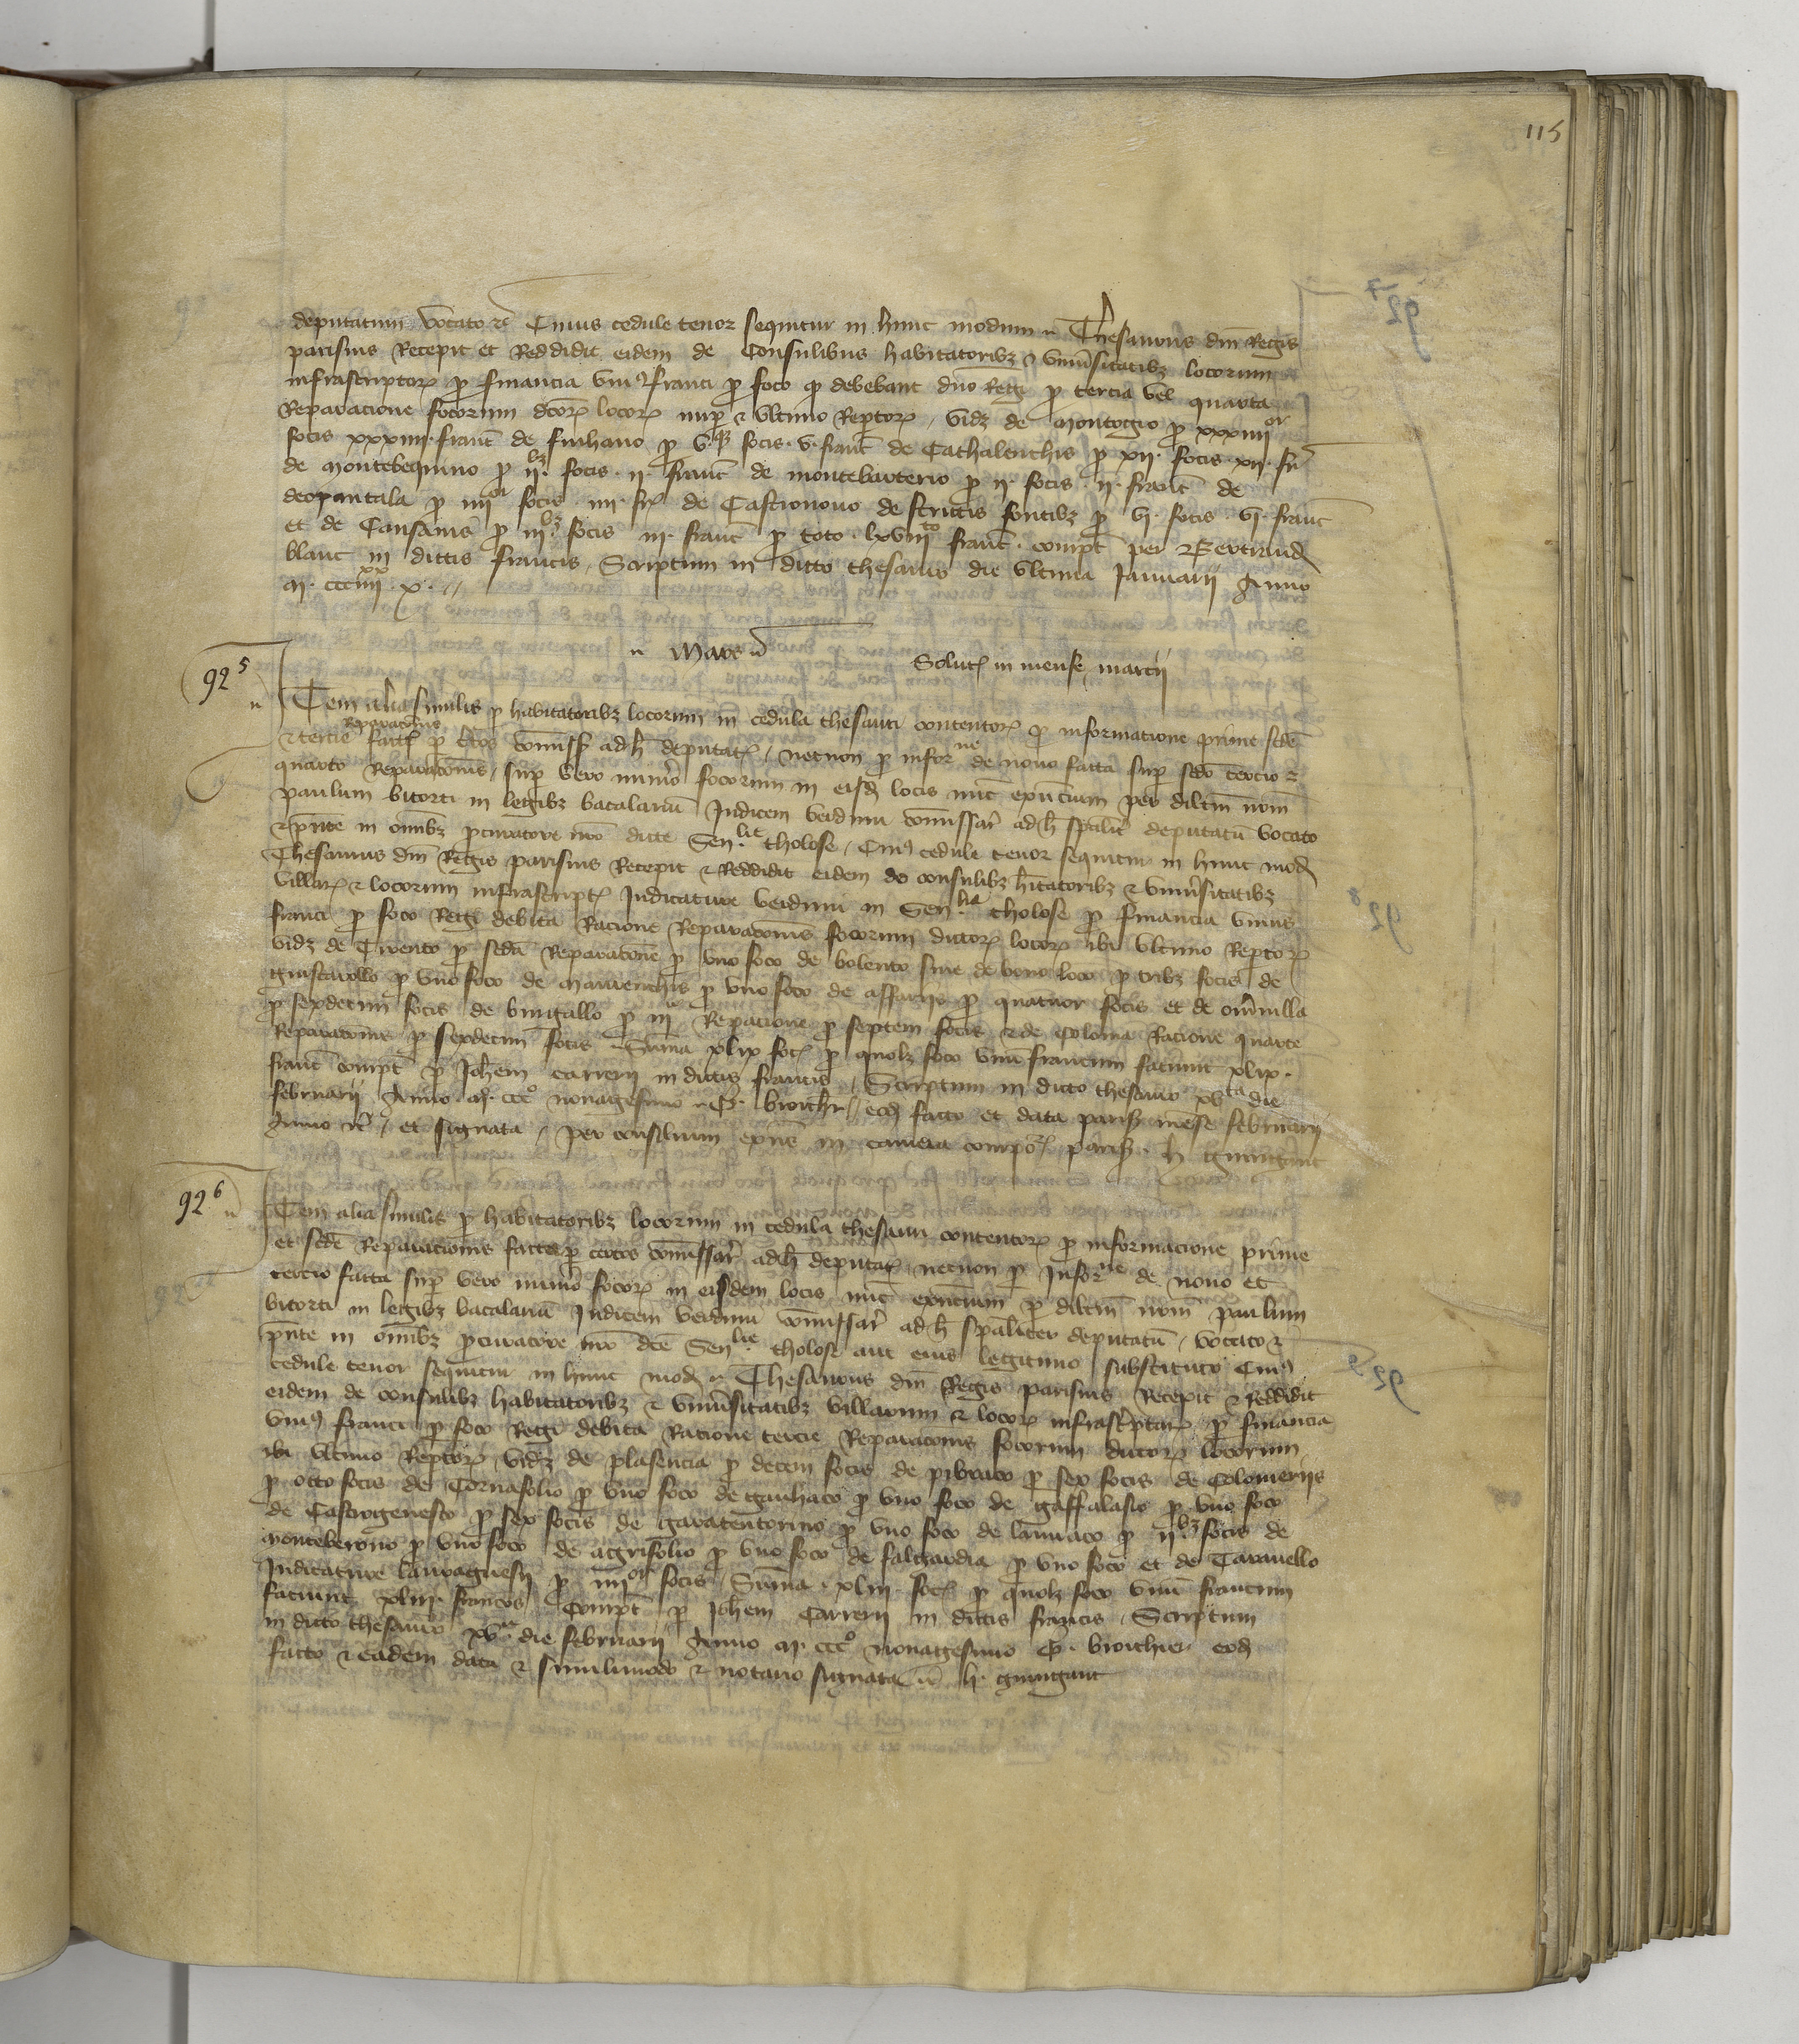 115
deputatum vocato etc Cuius cedule tenor sequitur in hunc modum Thesaurus dni Regis
parisius Recepit et Reddidit eidem de Consulibus habitatoribz et universitatibz locorum
infrascriptor pro financia uni9 franci pro foco quod debebant dno Regi pro tercia vel quarta
Reparacione focorum dcor locor nup et ultimo Reptor videz de Montogio pro xxxiiii or
focis xxxiiii franc de finhano pro v qz focis v franc de Cathalenchis pro xii focis xii fr
de montebequino pro ii bz focis ii franc de montebarterio pro ii focis ii franc de
deopantala pro iiii or focis iiii fr de Castronovo de strictis fontibz pro vi focis vi franc
et de Cansanis pro iii bz focis iii franc pro toto lxviii to franc compt per Bertrand
blanc in dictis francis Scriptum in dicto thesauro die ultima Januarii Anno
M ccc iiii xx x
Mars
Solut in mense marcii
925
Item alia similis pro habitatoribz locorum in cedula thesauri contentor pro informatione prime sede
Reparationis
et tercie facte per certos comiss ad hoc deputat necnon pro infor ne de novo facta sup sedo tercio et
quarto Reparaconis sup vero numero focorum in eisd locis nunc existencium per dilcm nrm
paulum bitorti in legibz bacalariu Judicem verduni comissar ad hoc spalit deputatu vocato
et pnte in omibz pcuratore nro dicte Sen lie tholose Cui9 cedule tenor sequitur in hunc mod
Thesaurus dni Regis parisius Recepit et Reddidit eidem de consulibz hitatoribz et universitatibz
villar et locorum infrascript Judicature verduni in Sen lia tholose pro financia unius
franci pro foco Regi debita Racione Reparaconis focorum dictor locor ibi ultimo Reptor
videz de Trivento pro seda Reparacone pro uno foco de volento sive de bono loco pro tribz focis de
guiscarollo pro uno foco de maurenchis pro uno foco de affariis pro quatuor focis et de omvilla
pro sexdecim focis de bingallo pro iii a Repacione pro septem focis et de soloma Racione quarte
Reparaconis pro sexdecim focis Suma xlix foc pro quolz foco unu francum faciunt xlix
franc compt p Johem carrerii in dictis francis Scriptum in dicto thesauro xv ta die
februarii Anno M ccc o nonagesimo P broichier eod facto et data paris mense februarii
Anno etc et signata per consilium exns in camera compor paris h guingant
926
Item alia similis pro habitatoribz locorum in cedula thesauri contentor pro informacione prime
et sede Reparationis facte p certos comissar ad hoc deputat necnon pro Infor ne de novo et
tercio facta sup vero numero focor in eisdem locis nunc existencium p dilcm nrm paulum
bitorti in legibz bacalariu Judicem verduni comissar ad hoc spaliter deputatu vocato et
pnte in omibz pcuratore nro dce Sen lie tholose aut eius legitimo substituto Cui9
cedule tenor sequitur in hunc mod Thesaurus dni Regis parisius Recepit et Reddidit
eidem de consulibz habitatoribz et universitatibz villarum et locor infrascriptar pro financia
uni9 franci pro foco Regi debita Racione tercie Reparaconis focorum dictor locorum
ibi ultimo Reptor videz de plasencia pro decem focis de pibraco pro sex focis de Colomeriis
pro octo focis de Cornasolio pro uno foco de gauhaco pro uno foco de gaffalasio pro uno foco
de Castrogenesto pro sex focis de garatentorino pro uno foco de launaco pro ii bz focis de
monteberono pro uno foco de agrifolio pro uno foco de falgardia pro uno foco et de Taravello
Judicature lauraguesii pro iiii or focis Suma xliii foc pro quolz foco unu francum
faciunt xliii francos Compt p Johem Carrerii in dictis francis Scriptum
in dicto thesauro xv ta die februarii Anno M ccc o nonagesimo P broichier eod
facto et eadem data et similimodo et notario signata etc h guingant